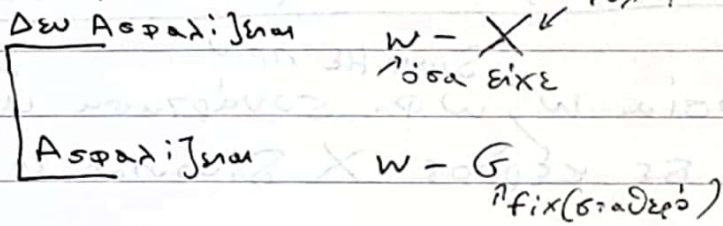 Δεν Ασφαλίζεται w - X
όσα είχε
Ασφαλίζεται w - G
fix (σταθερό)